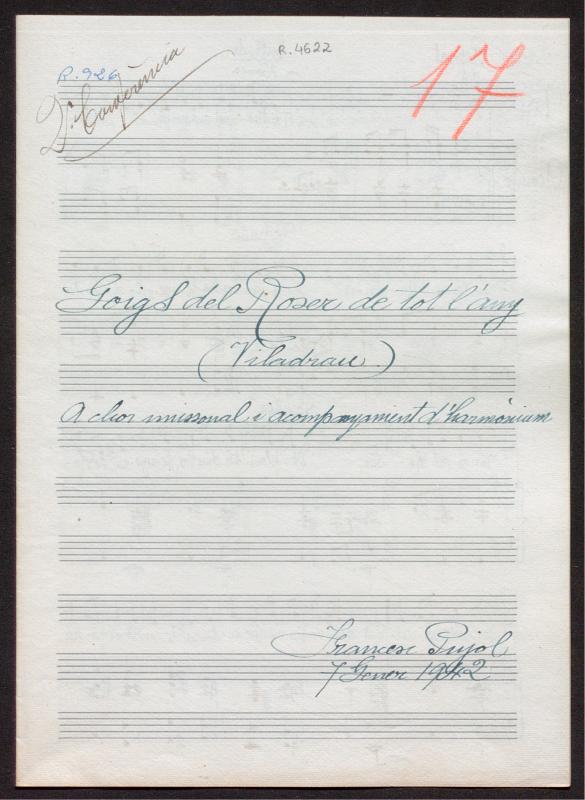 R. 4622
17
R. 926
2ª Conferència
Goigs del Roser de tot l'any
(Viladrau)
A chor unissonal i acompanyament d'harmònium
Francesc Pujol
7 Gener 1942